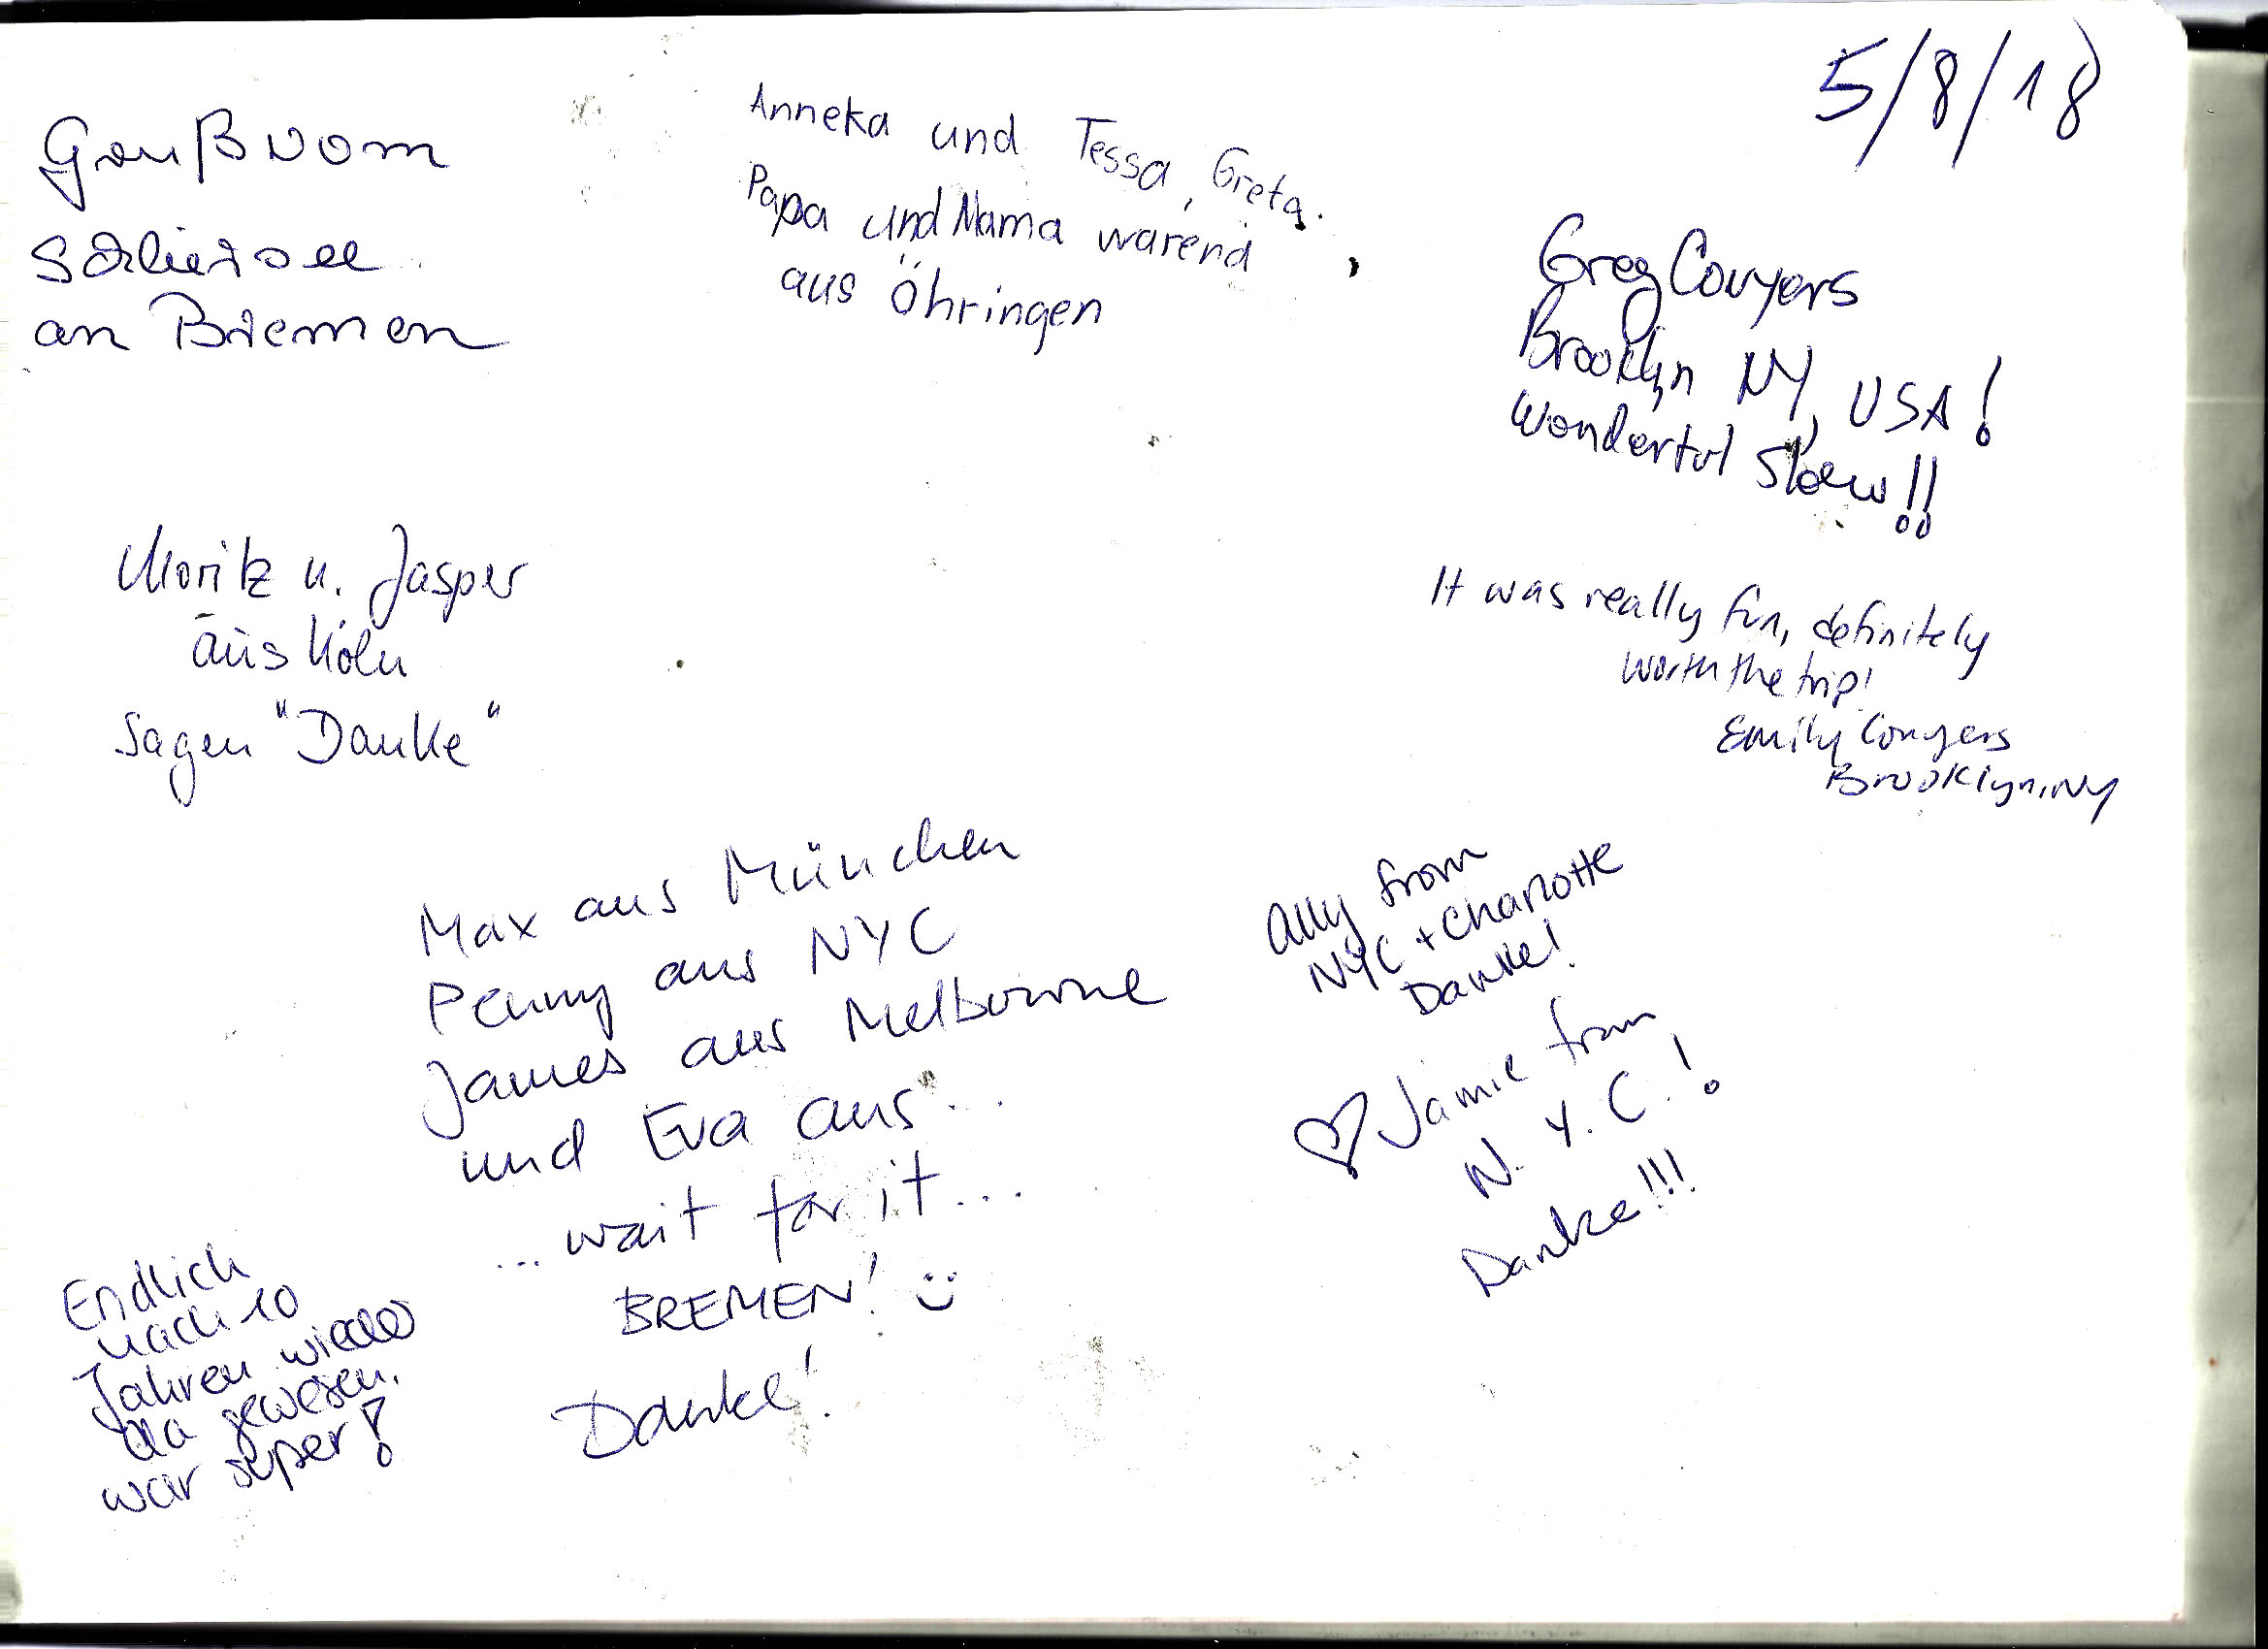 5/8/18
Gruß vom
Schliersee
an Bremen
Anneka und Tessa, Greta.
Papa und Mama warend
aus Öhringen
Greg Conyers
Brooklyn NY, USA!
Wonderful Show!!
It was really fun, definitely
worth the trip!
Emily Conyers
Brooklyn, NY
Moritz u. Jasper
aus Köln
sagen "Danke"
Max aus München
Penny aus NYC
James aus Melbourne
und Eva aus...
...wait for it...
BREMEN!
Danke!
Ally from
NYC + Charlotte
Danke!
Jamie from
N.Y.C.!
Danke!!!
Endlich
nach 10
Jahren wieder
da gewesen.
war super!